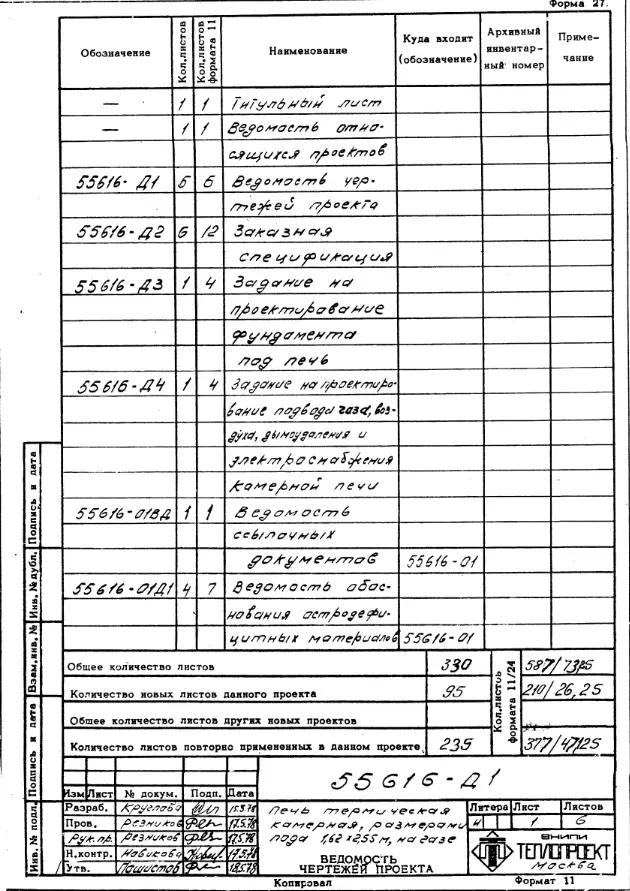 Форма 27.
Обозначение Кол.листов Кол.листов формата 11 Наименование Куда входит (обозначение) Архивный инвентар-ный номер Приме-чание
— 1 1 Титульный лист
— 1 1 Ведомость отно-
сящихся проектов
55616-Д1 6 6 Ведомость чер-
тежей проекта
55616-Д2 6 12 Заказная
спецификация
55616-Д3 1 4 Задание на
проектирование
фундамента
под печь
55616-Д4 1 4 Задание на проектиро-
вание подвода газа, воз-
духа, дымоудаления и
электроснабжения
камерной печи
55616-01ВД 1 1 Ведомость
ссылочных
документов 55616-01
55616-01Д1 4 7 Ведомость обос-
нования остродефи-
цитных материалов 55616-01
Общее количество листов 330
Количество новых листов данного проекта 95
Общее количество листов других новых проектов
Количество листов повторно примененных в данном проекте 235
Кол.листов формата 11/24
587/73,25
210/26,25
377/47,125
Инв. № подл. Подпись и дата Взам.инв. № Инв. № дубл. Подпись и дата
55616-Д1
Изм Лист № докум. Подп. Дата
Разраб. Круглова 15.5.78
Пров. Резников 17.5.78
Рук.пр. Резников 17.5.78
Н.контр. Новикова
Утв. 18.5.78
Печь термическая
камерная, размерами
пода 1,62 х 2,55 м, на газе
ВЕДОМОСТЬ
ЧЕРТЕЖЕЙ ПРОЕКТА
Литера Лист Листов
И 1 6
ВНИПИ
ТЕПЛОПРОЕКТ
Москва
Копировал Формат 11